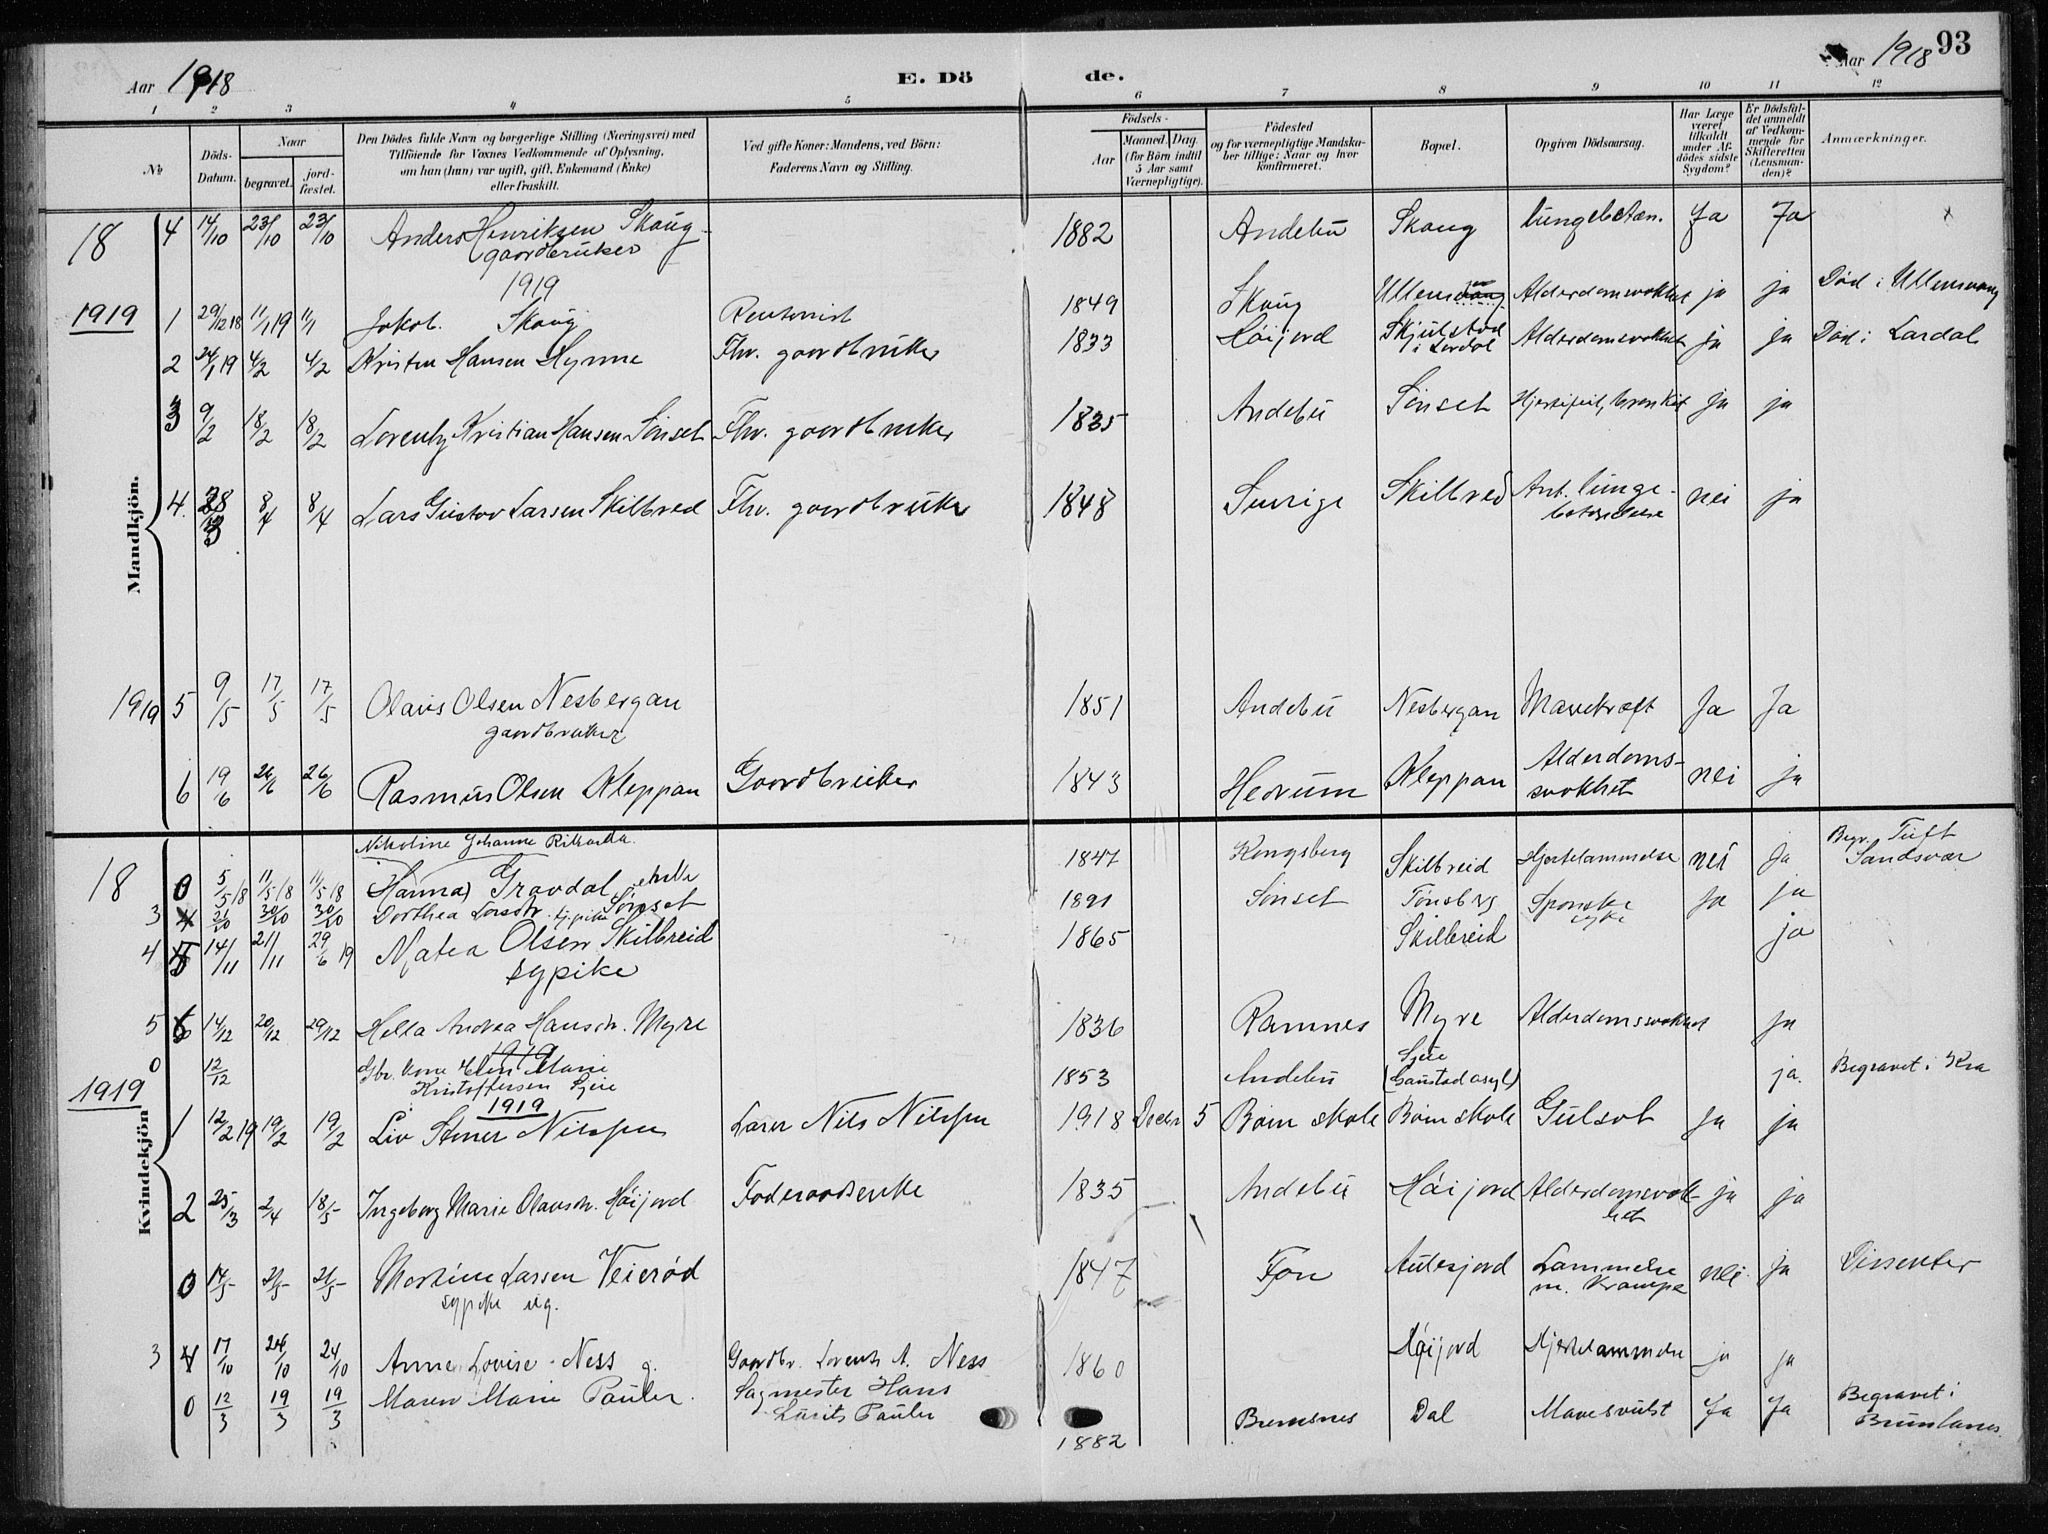 Aar 1918
E. Dö
de.
Aar 1918
93
1 2 3 4 5 6 7 8 9 10 11 12
No
Döds-Datum.
Naar
begravet.
jord-fæstet.
Den Dödes fulde Navn og borgerlige Stilling (Næringsvei) med
Tilföiende for Voxnes Vedkommende af Oplysning,
om han (hun) var ugift, gift, Enkemand (Enke)
eller fraskilt.
Ved gifte Koner: Mandens, ved Börn:
Faderens Navn og Stilling.
Födsels-
Aar
Maaned. Dag.
(for Börn indtil
5 Aar samt
Værnepligtige).
Födested
og for værnepligtige Mandska-
ber tillige: Naar og hvor
konfirmeret.
Bopæl.
Opgiven Dödsaarsag.
Har Læge
været
tilkaldt
under Af-
dödes sidste
Sygdom?
Er Dödsfal-
det anmeldt
af Vedkom-
mende for
Skifteretten
(Lensman-
den)?
Anmærkninger.
Mandkjön.
18 4 14/10 23/10 23/10 Anders Henriksen Skoug 1882 Andebu Skoug lungebetæn. Ja Ja x
gaardbruker
1919
1919 1 29/12 18 11/1 19 11/1 Jakob Skoug Rentenist 1849 Skoug Alderdomsvakhet ja ja Død i Ullensvang
2 24/1 19 4/2 4/2 Kristen Hansen Hynne Fhv. gaardbruker 1833 Høijord Skjulstad i Lardal Alderdomsvakhet ja ja Død i Lardal
3 9/2 18/2 18/2 Lorentz Kristian Hansen Sønset Fhv. gaardbruker 1835 Andebu Sønset Hjertefeil, bronkit ja ja
4. 28/3 8/4 8/4 Lars Gustav Larsen Skilbred Fhv. gaardbruker 1848 Sverige Skilbred Ant. lunge-
betændelse nei ja
1919 5 9/5 17/5 17/5 Olaus Olsen Nesbergan 1851 Andebu Nesbergan Mavekræft Ja Ja
gaardbruker
6 19/6 26/6 26/6 Rasmus Olsen Kleppan Gaardbruker 1843 Hedrum Kleppan Alderdoms-
svakhet nei ja
Kvindekjön
Nikoline Johanne Rikarda
18 0 5/5 18 11/5 18 11/5 18 (Hanna) Gravdal enke 1847 Kongsberg Skilbreid Hjertelammelse nei Ja Begr. Tuft
Sandsvær
3 4 21/10 30/10 30/10 Dorthea Larsdtr. tj.pike Sønset 1891 Sønset Tønsberg Spanske
syke Ja ja
4 5 14/11 21/11 29/6 19 Matea Olsen Skilbreid 1865 Skilbreid ja
sypike
5 6 14/12 20/12 29/12 Hella Andrea Hansdtr. Myre 1836 Ramnes Myre Alderdomssvakhet ja
1919
0 12/12 Gbr. kone Elen Marie
Kristoffersen Gjeie 1853 Andebu Gjeie
(Gaustad asyl) ja. Begravet i Kra
1919 1919
1 12/2 19 19/2 19/2 Liv Stener Nilssen Lærer Nils Nilssen 1918 Decbr 5 Bøen skole Bøen skole Gulsot Ja ja
2 25/3 2/4 18/5 Ingeborg Marie Olausdtr. Høijord Foderaadsenke 1835 Andebu Høijord Alderdomsvak-
het ja ja
0 14/5 21/5 21/5 Martine Larsen Veierød 1847 Fon Aulesjord Lammelse
m. Krampe nei ja Dissenter
sypike ug.
3 4 17/10 24/10 24/10 Anne Lovise Ness g. Gaardbr. Lorents A. Ness 1860 Høijord Hjertelammelse ja ja
0 12/3 19/3 19/3 Maren Marie Pauler Sagmester Hans
Lurits Pauler 1882 Bremsnes Dal Mavesvulst Ja Ja Begravet i
Brunlanes.